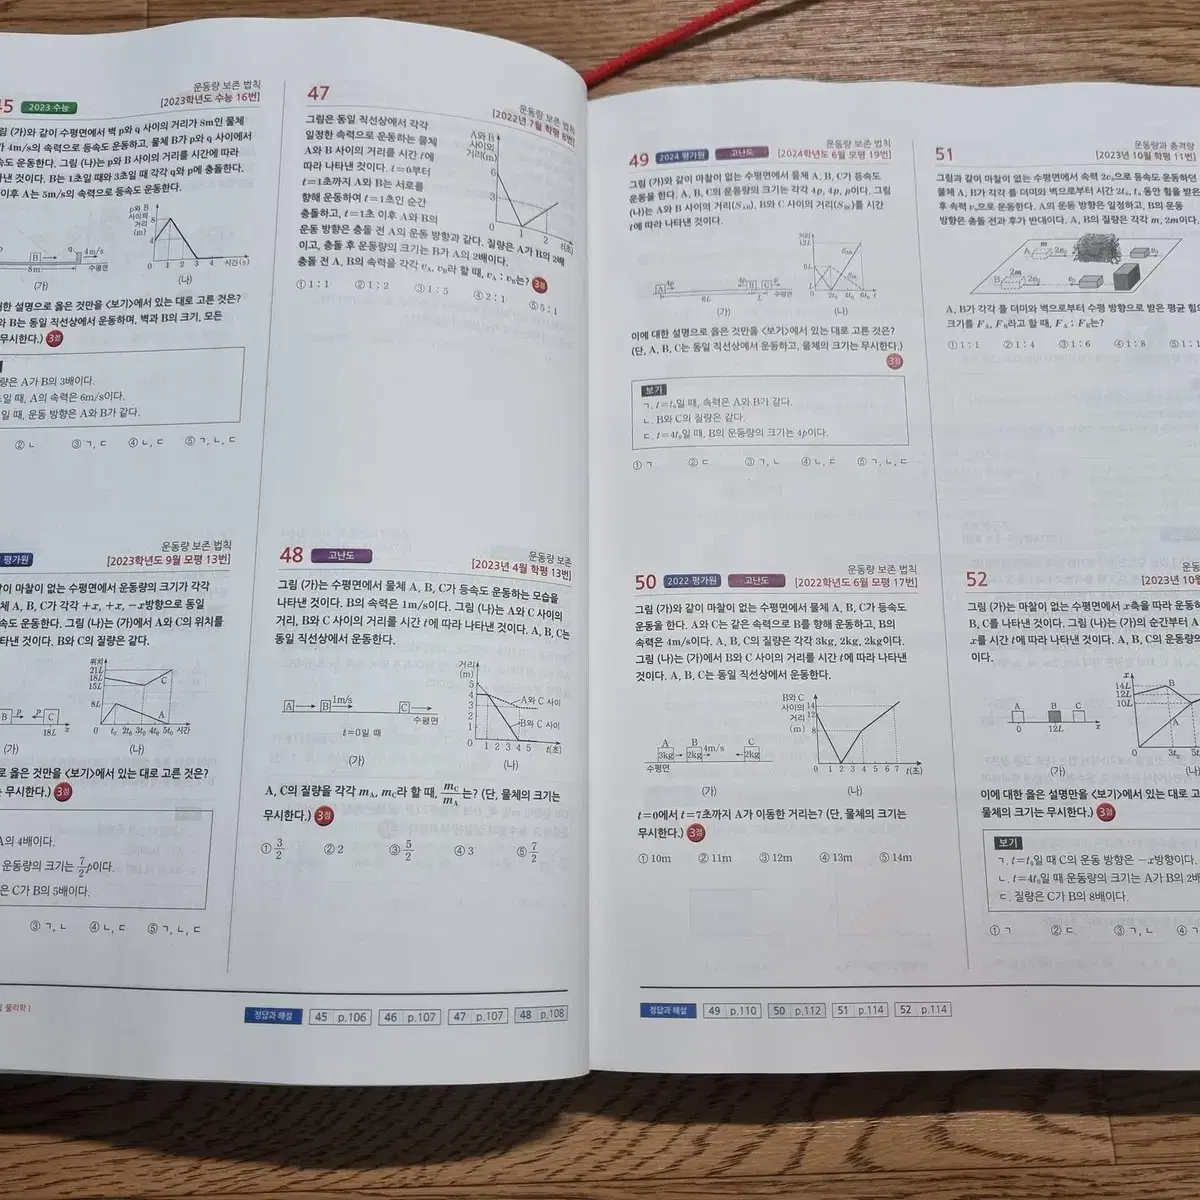 45 2023 수능
운동량 보존 법칙
[2023학년도 수능 16번]
(가)와 같이 수평면에서 벽 p와 q 사이의 거리가 8m인 물체
4m/s의 속력으로 등속도 운동하고, 물체 B가 p와 q 사이에서
운동한다. 그림 (나)는 p와 B 사이의 거리를 시간에 따라
것이다. B는 1초일 때와 3초일 때 각각 q와 p에 충돌한다.
이후 A는 5m/s의 속력으로 등속도 운동한다.
p와 B
사이의
거리
(m)
8
4
0 1 2 3 4 시간(s)
B q 4m/s
8m 수평면
(가)
(나)
설명으로 옳은 것만을 <보기>에서 있는 대로 고른 것은?
B는 동일 직선상에서 운동하며, 벽과 B의 크기, 모든
무시한다.) 3점
A가 B의 3배이다.
때, A의 속력은 6m/s이다.
때, 운동 방향은 A와 B가 같다.
② ㄴ ③ ㄱ, ㄷ ④ ㄴ, ㄷ ⑤ ㄱ, ㄴ, ㄷ
평가원
운동량 보존 법칙
[2023학년도 9월 모평 13번]
같이 마찰이 없는 수평면에서 운동량의 크기가 각각
A, B, C가 각각 +x, +x, −x방향으로 동일
운동한다. 그림 (나)는 (가)에서 A와 C의 위치를
것이다. B와 C의 질량은 같다.
위치
21L
18L
15L
8L
C
A
0 t₀ 2t₀ 3t₀ 4t₀ 5t₀ 시간
B p p C
18L x
(가)
(나)
옳은 것만을 <보기>에서 있는 대로 고른 것은?
무시한다.) 3점
A의 4배이다.
운동량의 크기는 7/2 p이다.
C가 B의 5배이다.
③ ㄱ, ㄴ ④ ㄴ, ㄷ ⑤ ㄱ, ㄴ, ㄷ
47
운동량 보존 법칙
[2022년 7월 학평 8번]
그림은 동일 직선상에서 각각
일정한 속력으로 운동하는 물체
A와 B 사이의 거리를 시간 t에
따라 나타낸 것이다. t=0부터
t=1초까지 A와 B는 서로를
향해 운동하여 t=1초인 순간
충돌하고, t=1초 이후 A와 B의
운동 방향은 충돌 전 A의 운동 방향과 같다. 질량은 A가 B의 2배
이고, 충돌 후 운동량의 크기는 B가 A의 2배이다.
충돌 전 A, B의 속력을 각각 vA, vB라 할 때, vA : vB는? 3점
A와 B
사이의
거리(m)
6
3
0 1 2 t(초)
① 1 : 1 ② 1 : 2 ③ 1 : 5 ④ 2 : 1 ⑤ 5 : 1
48 고난도
운동량 보존
[2023년 4월 학평 13번]
그림 (가)는 수평면에서 물체 A, B, C가 등속도 운동하는 모습을
나타낸 것이다. B의 속력은 1m/s이다. 그림 (나)는 A와 C 사이의
거리, B와 C 사이의 거리를 시간 t에 따라 나타낸 것이다. A, B, C는
동일 직선상에서 운동한다.
거리
(m)
5
4
3
2
1
A와 C 사이
B와 C 사이
1 2 3 4 5 t(초)
A B 1m/s C
수평면
t=0일 때
(가)
(나)
A, C의 질량을 각각 mA, mC라 할 때, mC/mA는? (단, 물체의 크기는
무시한다.) 3점
① 3/2 ② 2 ③ 5/2 ④ 3 ⑤ 7/2
물리학 I
정답과 해설 45 p.106 46 p.107 47 p.107 48 p.108
49 2024 평가원 고난도
운동량 보존 법칙
[2024학년도 6월 모평 19번]
그림 (가)와 같이 마찰이 없는 수평면에서 물체 A, B, C가 등속도
운동을 한다. A, B, C의 운동량의 크기는 각각 4p, 4p, p이다. 그림
(나)는 A와 B 사이의 거리(SAB), B와 C 사이의 거리(SBC)를 시간
t에 따라 나타낸 것이다.
거리
12L
SAB
SBC
2t₀ 4t₀ 6t₀ t
A 4p 4p B C p
6L L 수평면
(가)
(나)
이에 대한 설명으로 옳은 것만을 <보기>에서 있는 대로 고른 것은?
(단, A, B, C는 동일 직선상에서 운동하고, 물체의 크기는 무시한다.)
3점
보기
ㄱ. t=t₀일 때, 속력은 A와 B가 같다.
ㄴ. B와 C의 질량은 같다.
ㄷ. t=4t₀일 때, B의 운동량의 크기는 4p이다.
① ㄱ ② ㄷ ③ ㄱ, ㄴ ④ ㄴ, ㄷ ⑤ ㄱ, ㄴ, ㄷ
50 2022 평가원 고난도
운동량 보존 법칙
[2022학년도 6월 모평 17번]
그림 (가)와 같이 마찰이 없는 수평면에서 물체 A, B, C가 등속도
운동을 한다. A와 C는 같은 속력으로 B를 향해 운동하고, B의
속력은 4m/s이다. A, B, C의 질량은 각각 3kg, 2kg, 2kg이다.
그림 (나)는 (가)에서 B와 C 사이의 거리를 시간 t에 따라 나타낸
것이다. A, B, C는 동일 직선상에서 운동한다.
B와 C
사이의
거리
(m)
14
12
8
0 1 2 3 4 5 6 7 t(초)
A B 4m/s C
3kg 2kg 2kg
수평면
(가)
(나)
t=0에서 t=7초까지 A가 이동한 거리는? (단, 물체의 크기는
무시한다.) 3점
① 10m ② 11m ③ 12m ④ 13m ⑤ 14m
51
운동량과 충격량
[2023년 10월 학평 11번]
그림과 같이 마찰이 없는 수평면에서 속력 2v₀으로 등속도 운동하던
물체 A, B가 각각 풀 더미와 벽으로부터 시간 2t₀, t₀ 동안 힘을 받은
후 속력 v₀으로 운동한다. A의 운동 방향은 일정하고, B의 운동
방향은 충돌 전과 후가 반대이다. A, B의 질량은 각각 m, 2m이다.
m
A 2v₀ v₀
2m
B 2v₀ v₀
A, B가 각각 풀 더미와 벽으로부터 수평 방향으로 받은 평균 힘의
크기를 FA, FB라고 할 때, FA : FB는?
① 1 : 1 ② 1 : 4 ③ 1 : 6 ④ 1 : 8 ⑤ 1 :
52
[2023년 10
그림 (가)는 마찰이 없는 수평면에서 x축을 따라 운동하
B, C를 나타낸 것이다. 그림 (나)는 (가)의 순간부터 A
x를 시간 t에 따라 나타낸 것이다. A, B, C의 운동량의
이다.
x
14L
12L
10L
B
A
0 3t₀ 5t₀
A B C
0 12L x
(가)
(나)
이에 대한 설명으로 옳은 것만을 <보기>에서 있는 대로
물체의 크기는 무시한다.) 3점
보기
ㄱ. t=t₀일 때 C의 운동 방향은 −x방향이다.
ㄴ. t=4t₀일 때 운동량의 크기는 A가 B의 2배
ㄷ. 질량은 C가 B의 8배이다.
① ㄱ ② ㄷ ③ ㄱ, ㄴ ④
정답과 해설 49 p.110 50 p.112 51 p.114 52 p.114